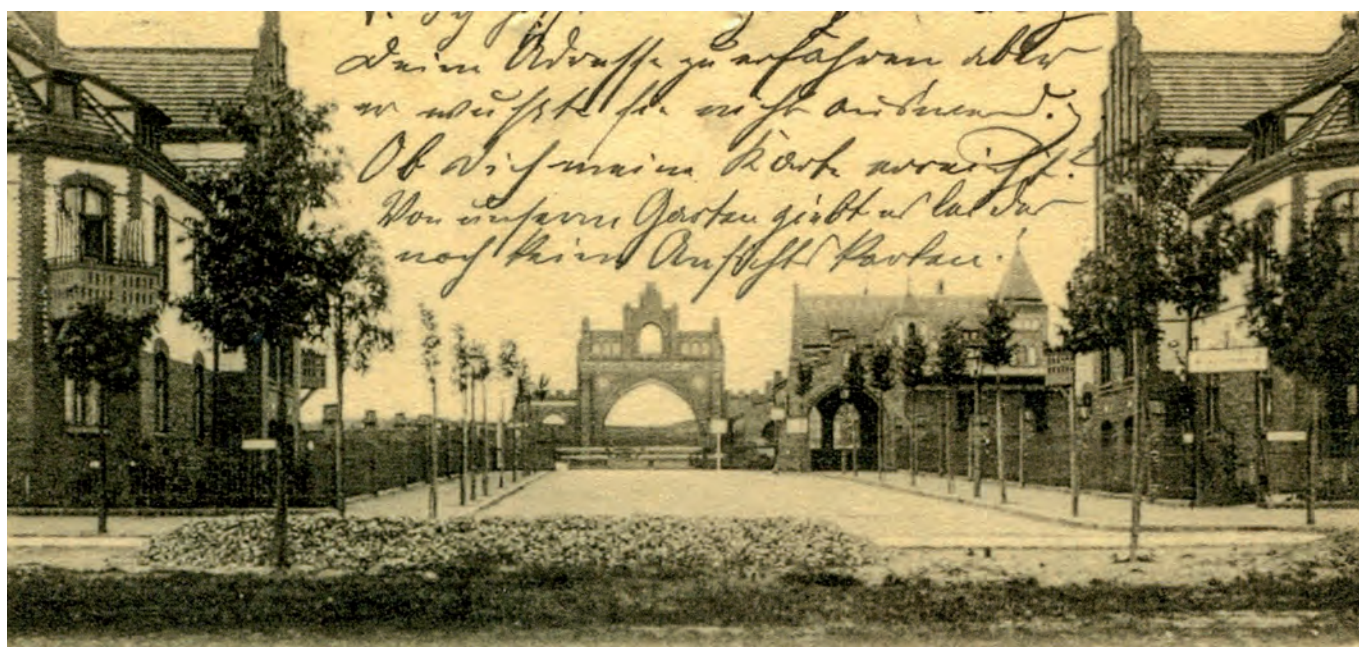 Deine Adresse zu erfahren aber
er wußte sie nicht auswend.
Ob Dich meine Karte erreicht?
Von unserm Garten giebt es leider
noch keine Ansichts Karten.